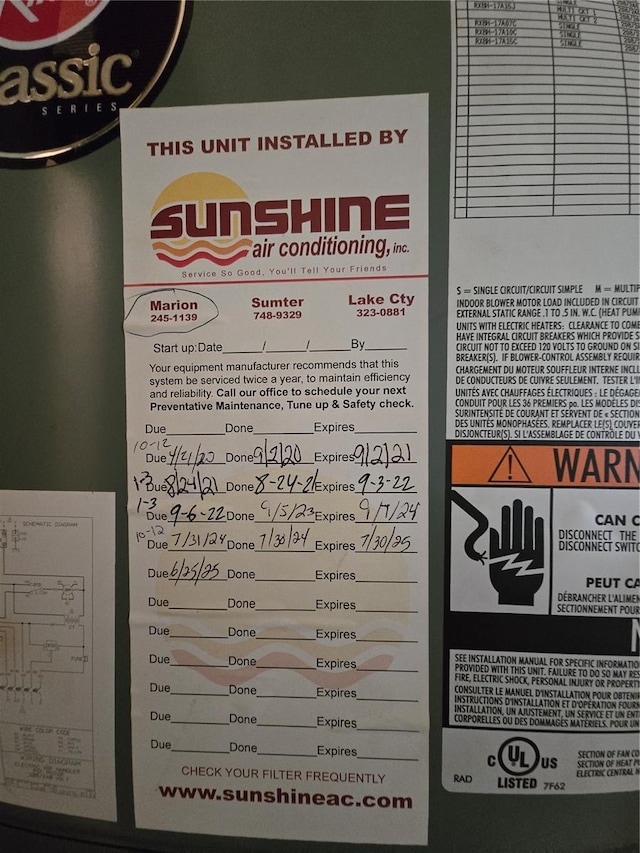 assic
SERIES
THIS UNIT INSTALLED BY
SUNSHINE
air conditioning, inc.
Service So Good, You'll Tell Your Friends
Marion Sumter Lake Cty
245-1139 748-9329 323-0881
Start up: Date / / By
Your equipment manufacturer recommends that this
system be serviced twice a year, to maintain efficiency
and reliability. Call our office to schedule your next
Preventative Maintenance, Tune up & Safety check.
Due Done Expires
10-12
Due 4/21/20 Done 9/2/20 Expires 9/2/21
1-3 Due 8/24/21 Done 8-24-21 Expires 9-3-22
1-3
Due 9-6-22 Done 9/5/23 Expires 9/7/24
10-12
Due 7/31/24 Done 7/30/24 Expires 7/30/25
Due 6/25/25 Done Expires
Due Done Expires
Due Done Expires
Due Done Expires
Due Done Expires
Due Done Expires
Due Done Expires
CHECK YOUR FILTER FREQUENTLY
www.sunshineac.com
SCHEMATIC DIAGRAM
WIRE COLOR CODE
WIRING DIAGRAM
RXBH-17A15J SINGLE
MULTI CKT 1
MULTI CKT 2
RXBH-17A07C SINGLE
RXBH-17A10C SINGLE
RXBH-17A15C SINGLE
S = SINGLE CIRCUIT/CIRCUIT SIMPLE M = MULTIP
INDOOR BLOWER MOTOR LOAD INCLUDED IN CIRCUIT
EXTERNAL STATIC RANGE .1 TO .5 IN. W.C. (HEAT PUM
UNITS WITH ELECTRIC HEATERS: CLEARANCE TO COM
HAVE INTEGRAL CIRCUIT BREAKERS WHICH PROVIDE S
CIRCUIT NOT TO EXCEED 120 VOLTS TO GROUND ON SI
BREAKER(S). IF BLOWER-CONTROL ASSEMBLY REQUIR
CHARGEMENT DU MOTEUR SOUFFLEUR INTERNE INCL
DE CONDUCTEURS DE CUIVRE SEULEMENT. TESTER L'I
UNITÉS AVEC CHAUFFAGES ÉLECTRIQUES : LE DÉGAGE
CONDUIT POUR LES 36 PREMIERS po. LES MODÈLES DI
SURINTENSITÉ DE COURANT ET SERVENT DE « SECTION
DES UNITÉS MONOPHASÉES. REMPLACER LE(S) COUVER
DISJONCTEUR(S). SI L'ASSEMBLAGE DE CONTRÔLE DU V
WARN
CAN C
DISCONNECT THE
DISCONNECT SWITC
PEUT CA
DÉBRANCHER L'ALIMEN
SECTIONNEMENT POUR
SEE INSTALLATION MANUAL FOR SPECIFIC INFORMATIO
PROVIDED WITH THIS UNIT. FAILURE TO DO SO MAY RES
FIRE, ELECTRIC SHOCK, PERSONAL INJURY OR PROPERT
CONSULTER LE MANUEL D'INSTALLATION POUR OBTEN
INSTRUCTIONS D'INSTALLATION ET D'OPÉRATION FOURN
INSTALLATION, UN AJUSTEMENT, UN SERVICE ET UN ENT
CORPORELLES OU DES DOMMAGES MATÉRIELS. POUR UN
C UL US
LISTED 7F62
RAD
SECTION OF FAN CO
SECTION OF HEAT P
ELECTRIC CENTRAL H